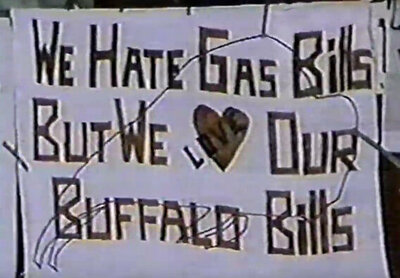 WE HATE GAS BIllS!
BUT WE LOVE OUR
BUFFALO BIllS